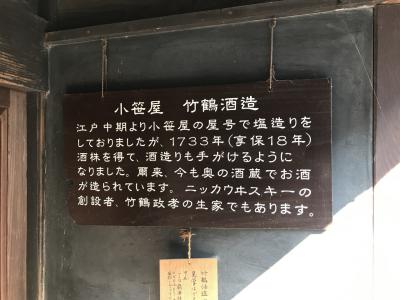 小笹屋 竹鶴酒造
江戸中期より小笹屋の屋号で塩造りを
しておりましたが、1733年(享保18年)
酒株を得て、酒造りも手がけるように
なりました。爾来、今も奥の酒蔵でお酒
が造られています。ニッカウヰスキーの
創設者、竹鶴政孝の生家でもあります。